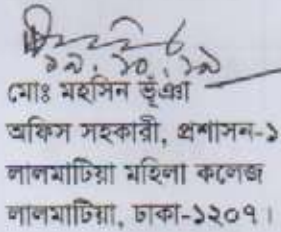 ১৯.১০.১৯
মোঃ মহসিন ভূঁঞা
অফিস সহকারী, প্রশাসন-১
লালমাটিয়া মহিলা কলেজ
লালমাটিয়া, ঢাকা-১২০৭।